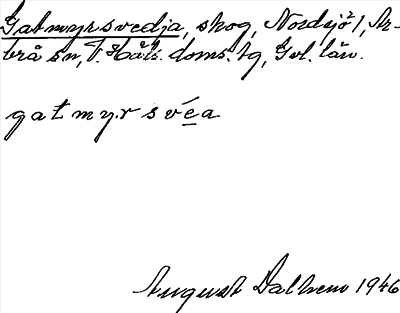 Gatmyrsvedja, skog, Nordsjö 1, Ar-
brå sn, V. Häls. doms. tg, Gvl. län.
gatmyrsvéa
August Dalhem 1946